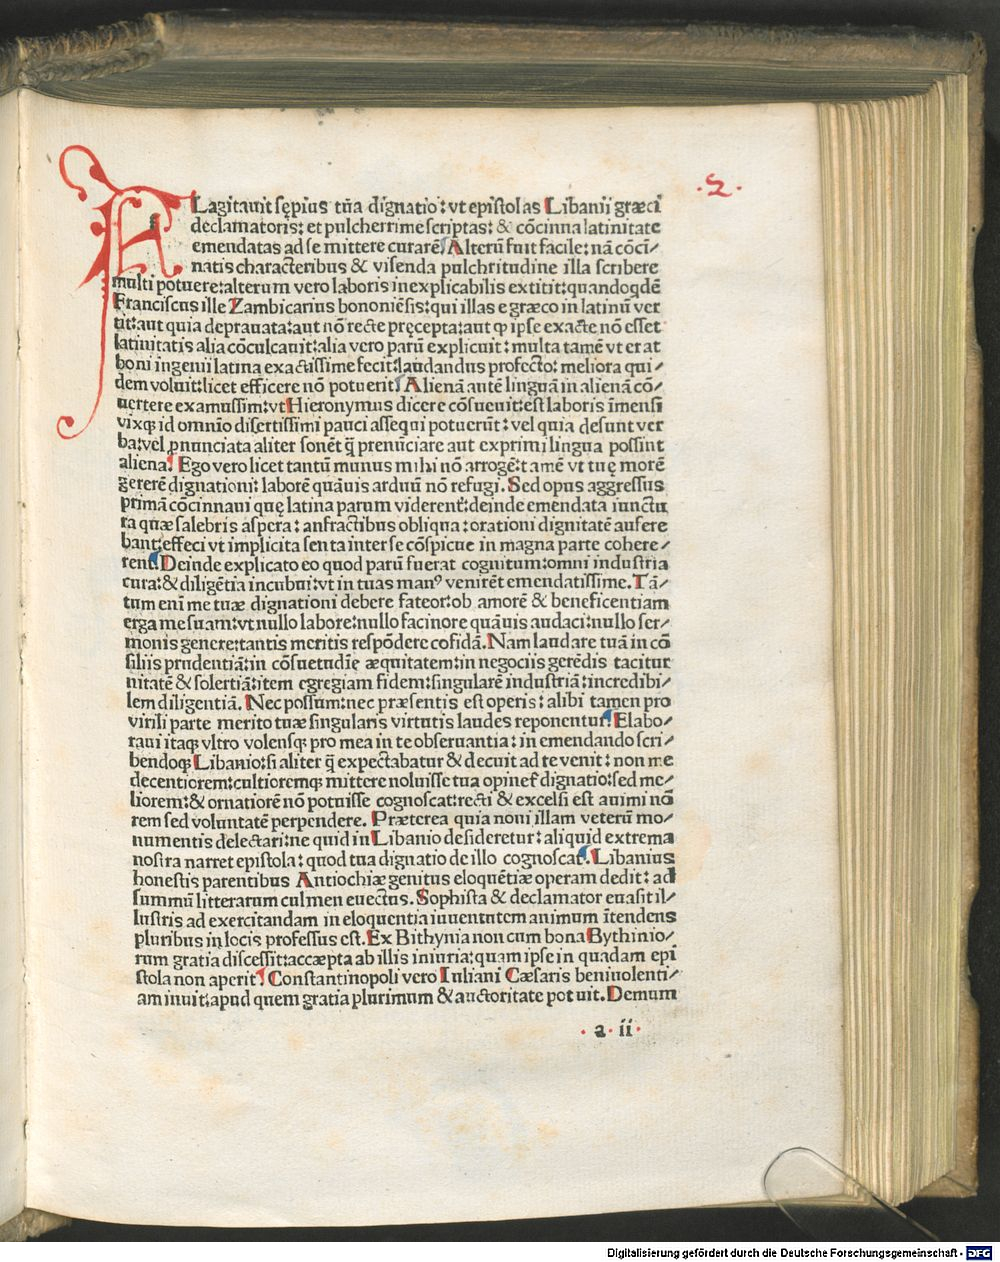 ·2·
FLagitauit sępius tña dignatio: vt epistolas Libanii græci
declamatoris: et pulcherrime scriptas: & cōcinna latinitate
emendatas ad se mittere curarē. Alterū fuit facile: nā cōci⸗
natis characteribus & visenda pulchritudine illa scribere
multi potuere: alterum vero laboris inexplicabilis extitit: quandoqdē
Franciscus ille Zambicarius bononiēsis: qui illas e græco in latinū ver
tit: aut quia deprauata: aut nō recte pręcepta: aut ꝙ ipse exacte nō esset
latinitatis alia cōculcauit: alia vero parū explicuit: multa tamē vt erat
boni ingenii latina exactissime fecit: laudandus profecto: meliora qui⸗
dem voluit: licet efficere nō potuerit. Alienā autē linguā in alienā cō⸗
uertere examussim: vt Hieronymus dicere cōsueuit: est laboris īmensi
vixqꝫ id omnīo disertissimi pauci assequi potuerūt: vel quia desunt ver
ba: vel ꝓnunciata aliter sonēt q̄ prenūciare aut exprimi lingua possint
aliena. Ego vero licet tantū munus mihi nō arrogē: tamē vt tuę morē
gererē dignationi: laborē quāuis arduū nō refugi. Sed opus aggressus
primā cōcinnaui quę latina parum viderent̄: deinde emendata iunctu
ra quæ salebris aspera: anfractibus obliqua: orationi dignitatē aufere
bant: effeci vt implicita sen ta inter se cōspicue in magna parte cohere⸗
rent. Deinde explicato eo quod parū fuerat cognitum: omni industria
cura: & diligētia incubui: vt in tuas manꝰ venirēt emendatissime. Tā⸗
tum enī me tuæ dignationi debere fateor: ob amorē & beneficentiam
erga me suam: vt nullo labore: nullo facinore quāuis audaci: nullo ser⸗
monis genere: tantis meritis respōdere cofidā. Nam laudare tuā in cō
siliis prudentiā: in cōsuetudīe æquitatem: in negociis gerēdis tacitur
nitatē & solertiā: item egregiam fidem: singularē industriā: incredibi⸗
lem diligentiā. Nec possum: nec præsentis est operis: alibi tamen pro
virili parte merito tuæ singularis virtutis laudes reponentur. Elabo⸗
raui itaqꝫ vltro volensqꝫ pro mea in te obseruantia: in emendando scri⸗
bendoqꝫ Libanio: si aliter q̄ expectabatur & decuit ad te venit: non me
decentiorem: cultioremqꝫ mittere noluisse tua opinet̄ dignatio: sed me⸗
liorem: & ornatiorē nō potuisse cognoscat: recti & excelsi est animi nō
rem sed voluntatē perpendere. Præterea quia noui illam veterū mo⸗
numentis delectari: ne quid in Libanio desideretur: aliquid extrema
nostra narret epistola: quod tua dignatio de illo cognoscat. Libanius
honestis parentibus Antiochiæ genitus eloquētiæ operam dedit: ad
summū litterarum culmen euectus. Sophista & declamator euasit il⸗
lustris ad exercitandam in eloquentia iuuentutem animum ītendens
pluribus in locis professus est. Ex Bithynia non cum bona Bythinio⸗
rum gratia discessit: accæpta ab illis iniuria: quam ipse in quadam epi
stola non aperit. Constantinopoli vero Iuliani Cæsaris beniuolenti⸗
am inuit: apud quem gratia plurimum & auctoritate potuit. Demum
· a · ii ·
Digitalisierung gefördert durch die Deutsche Forschungsgemeinschaft - DFG